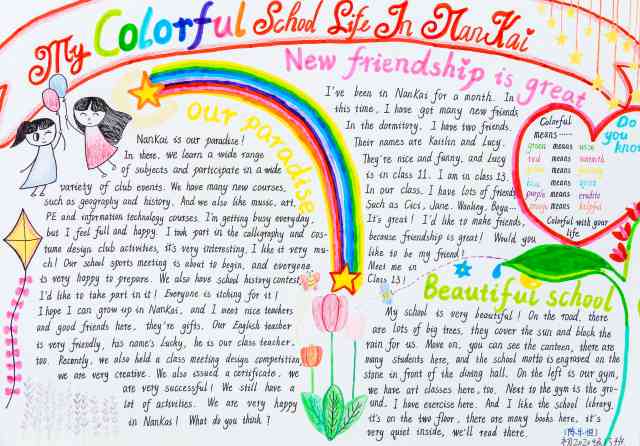 My Colorful School Life In NanKai
New friendship is great
our paradise
NanKai is our paradise!
In there, we learn a wide range
of subjects and participate in a wide
variety of club events. We have many new courses,
such as geography and history. And we also like music, art,
PE and information technology courses. I'm getting busy everyday,
but I feel full and happy. I took part in the calligraphy and cos-
tume design club activities, it's very interesting, I like it very mu-
ch! Our school sports meeting is about to begin, and everyone
is very happy to prepare. We also have school history contest,
I'd like to take part in it! Everyone is itching for it!
I hope I can grow up in NanKai, and I meet nice teachers
and good friends here, they're gifts. Our English teacher
is very friendly, his name's Lucky, he is our class teacher,
too. Recently, we also held a class meeting design competition,
we are very creative. We also issued a certificate. We
are very successful! We still have a
lot of activities. We are very happy
in NanKai! What do you think?
I've been in NanKai for a month. In
this time, I have got many new friends
In the dormitory, I have two friends.
Their names are Kaitlin and Lucy.
They're nice and funny, and Lucy
is in class 11, I am in class 13.
In our class, I have lots of friends
Such as Cici, Jane, Wonkey, Boya...
It's great! I'd like to make friends,
because friendship is great! Would you
like to be my friend!
Meet me in
Class 13!
Do
you
know
Colorful
means ......
green means
red means warmth
means
blue means
purple means erudite
orange means helpful
Colorful with your
life
Beautiful school
My school is very beautiful! On the road, there
are lots of big trees, they cover the sun and block the
rain for us. Move on, you can see the canteen, there are
many students here, and the school motto is engraved on the
stone in front of the dining hall. On the left is our gym,
we have art classes here, too. Next to the gym is the grou-
nd. I have exercise here. And I like the school library,
it's on the two floor, there are many books here, it's
very quiet inside, we'll read there.